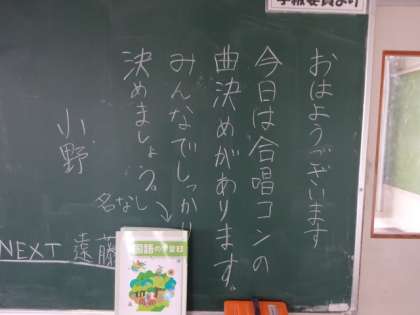 おはようございます
今日は合唱コンの
曲決めがあります。
みんなでしっか
決めましょう。
小野
名なし
NEXT 遠藤
国語の学習